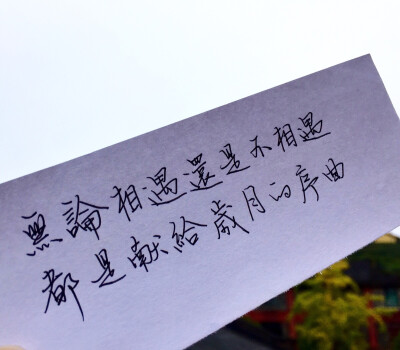 無論相遇還是不相遇
都是獻給歲月的序曲